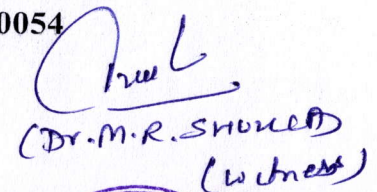 0054
(Dr. M. R. SHUKLA)
(witness)